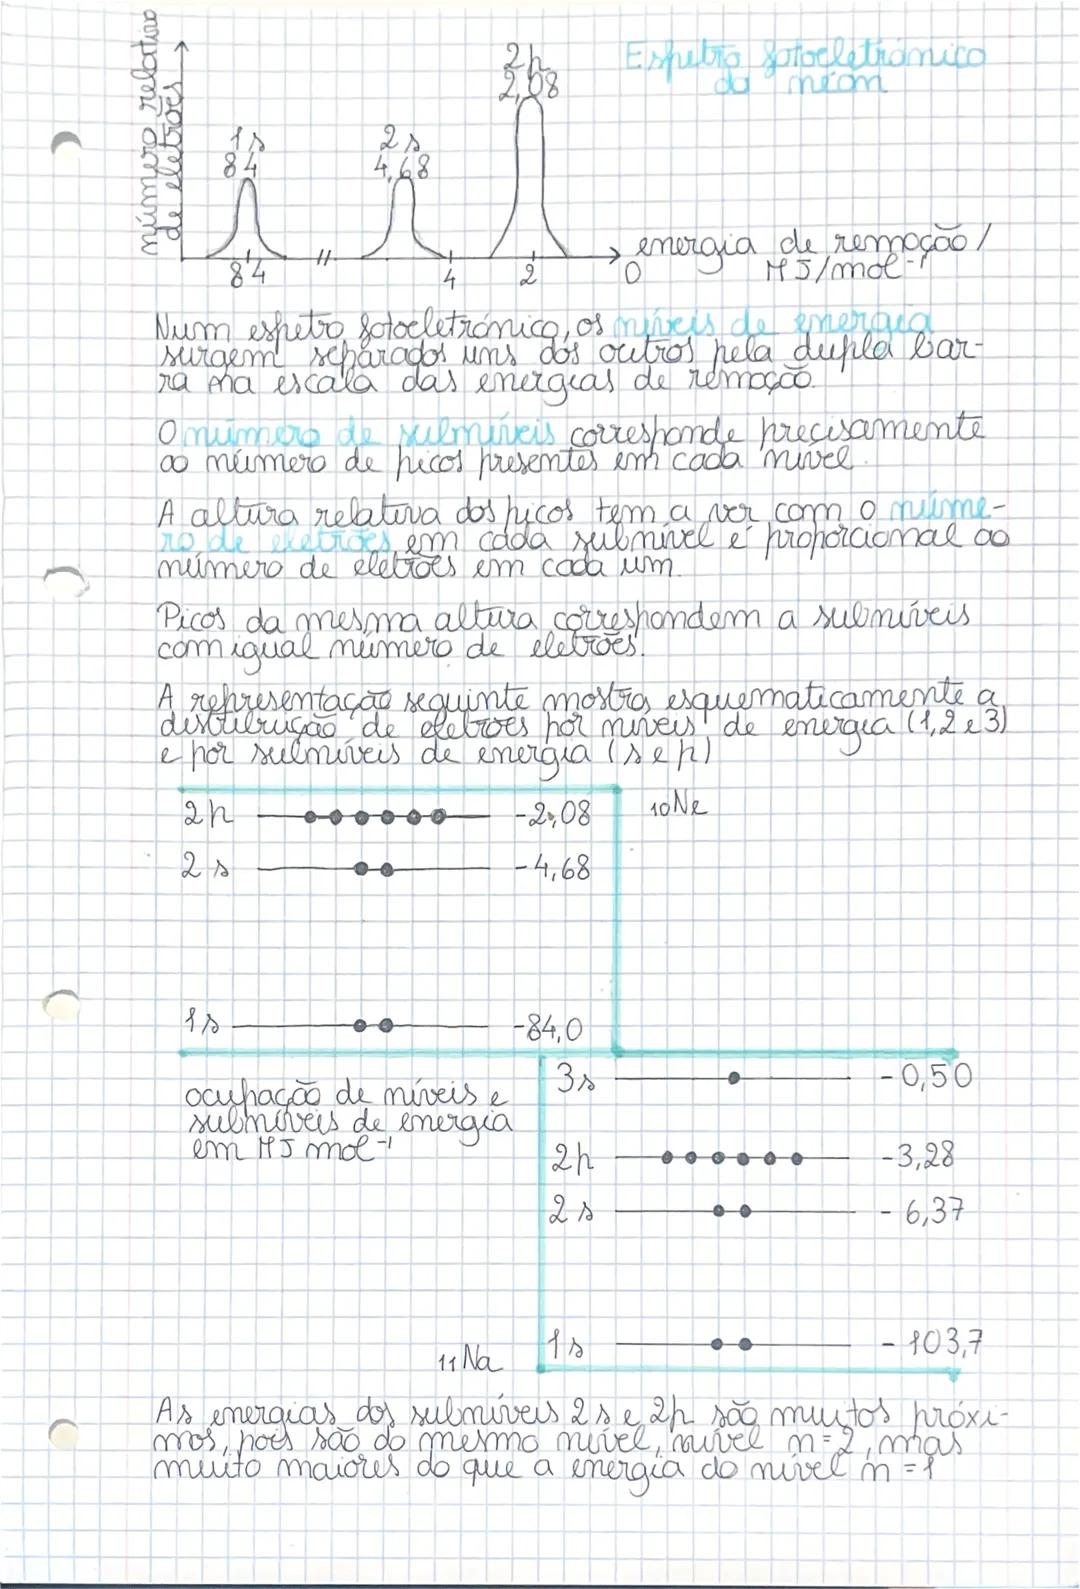 número relativo
de eletrões
1s
84
2s
4,68
2p
2,08
Espetro fotoeletrónico
do néon
84
//
4
2
0
energia de remoção /
MJ/mol⁻¹
Num espetro fotoeletrónico, os níveis de energia
surgem separados uns dos outros pela dupla bar-
ra na escala das energias de remoção.
O número de subníveis corresponde precisamente
ao número de picos presentes em cada nível.
A altura relativa dos picos tem a ver com o núme-
ro de eletrões em cada subnível e é proporcional ao
número de eletrões em cada um.
Picos da mesma altura correspondem a subníveis
com igual número de eletrões.
A representação seguinte mostra esquematicamente a
distribuição de eletrões por níveis de energia (1,2 e 3)
e por subníveis de energia (s e p)
2p -2,08
10Ne
2s -4,68
1s -84,0
ocupação de níveis e
subníveis de energia
em MJ mol⁻¹
3s -0,50
2p -3,28
2s -6,37
1s -103,7
11Na
As energias dos subníveis 2s e 2p são muitos próxi-
mos, pois são do mesmo nível, nível n=2, mas
muito maiores do que a energia do nível n=1